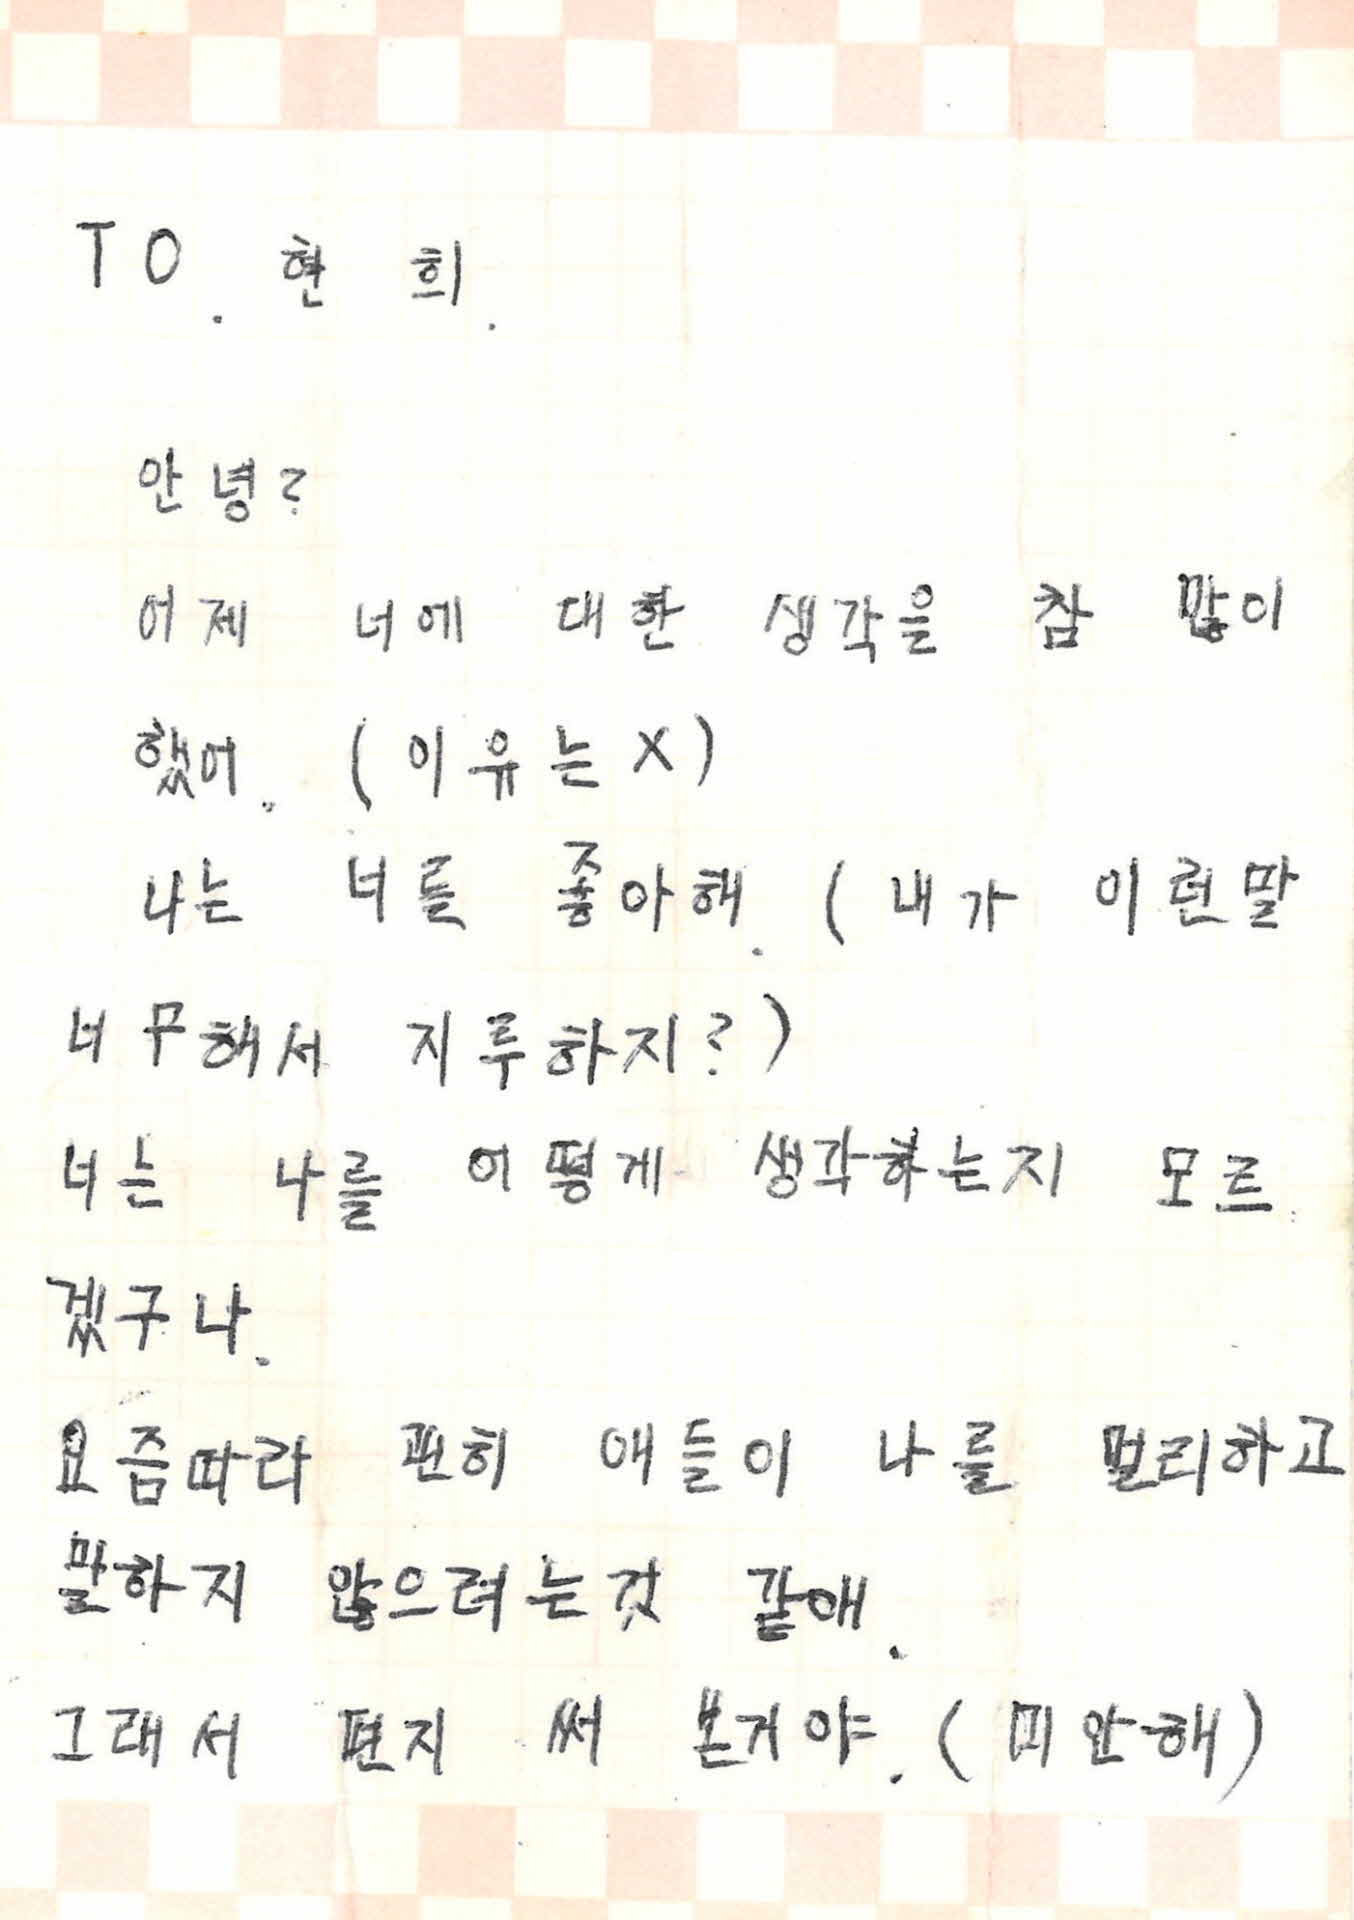 TO. 현희.
안녕?
어제 너에 대한 생각을 참 많이
했어. (이유는X)
나는 너를 좋아해. (내가 이런말
너무해서 지루하지?)
너는 나를 어떻게 생각하는지 모르
겠구나.
요즘따라 괜히 애들이 나를 멀리하고
말하지 않으려는것 같애.
그래서 편지 써 본거야. (미안해)